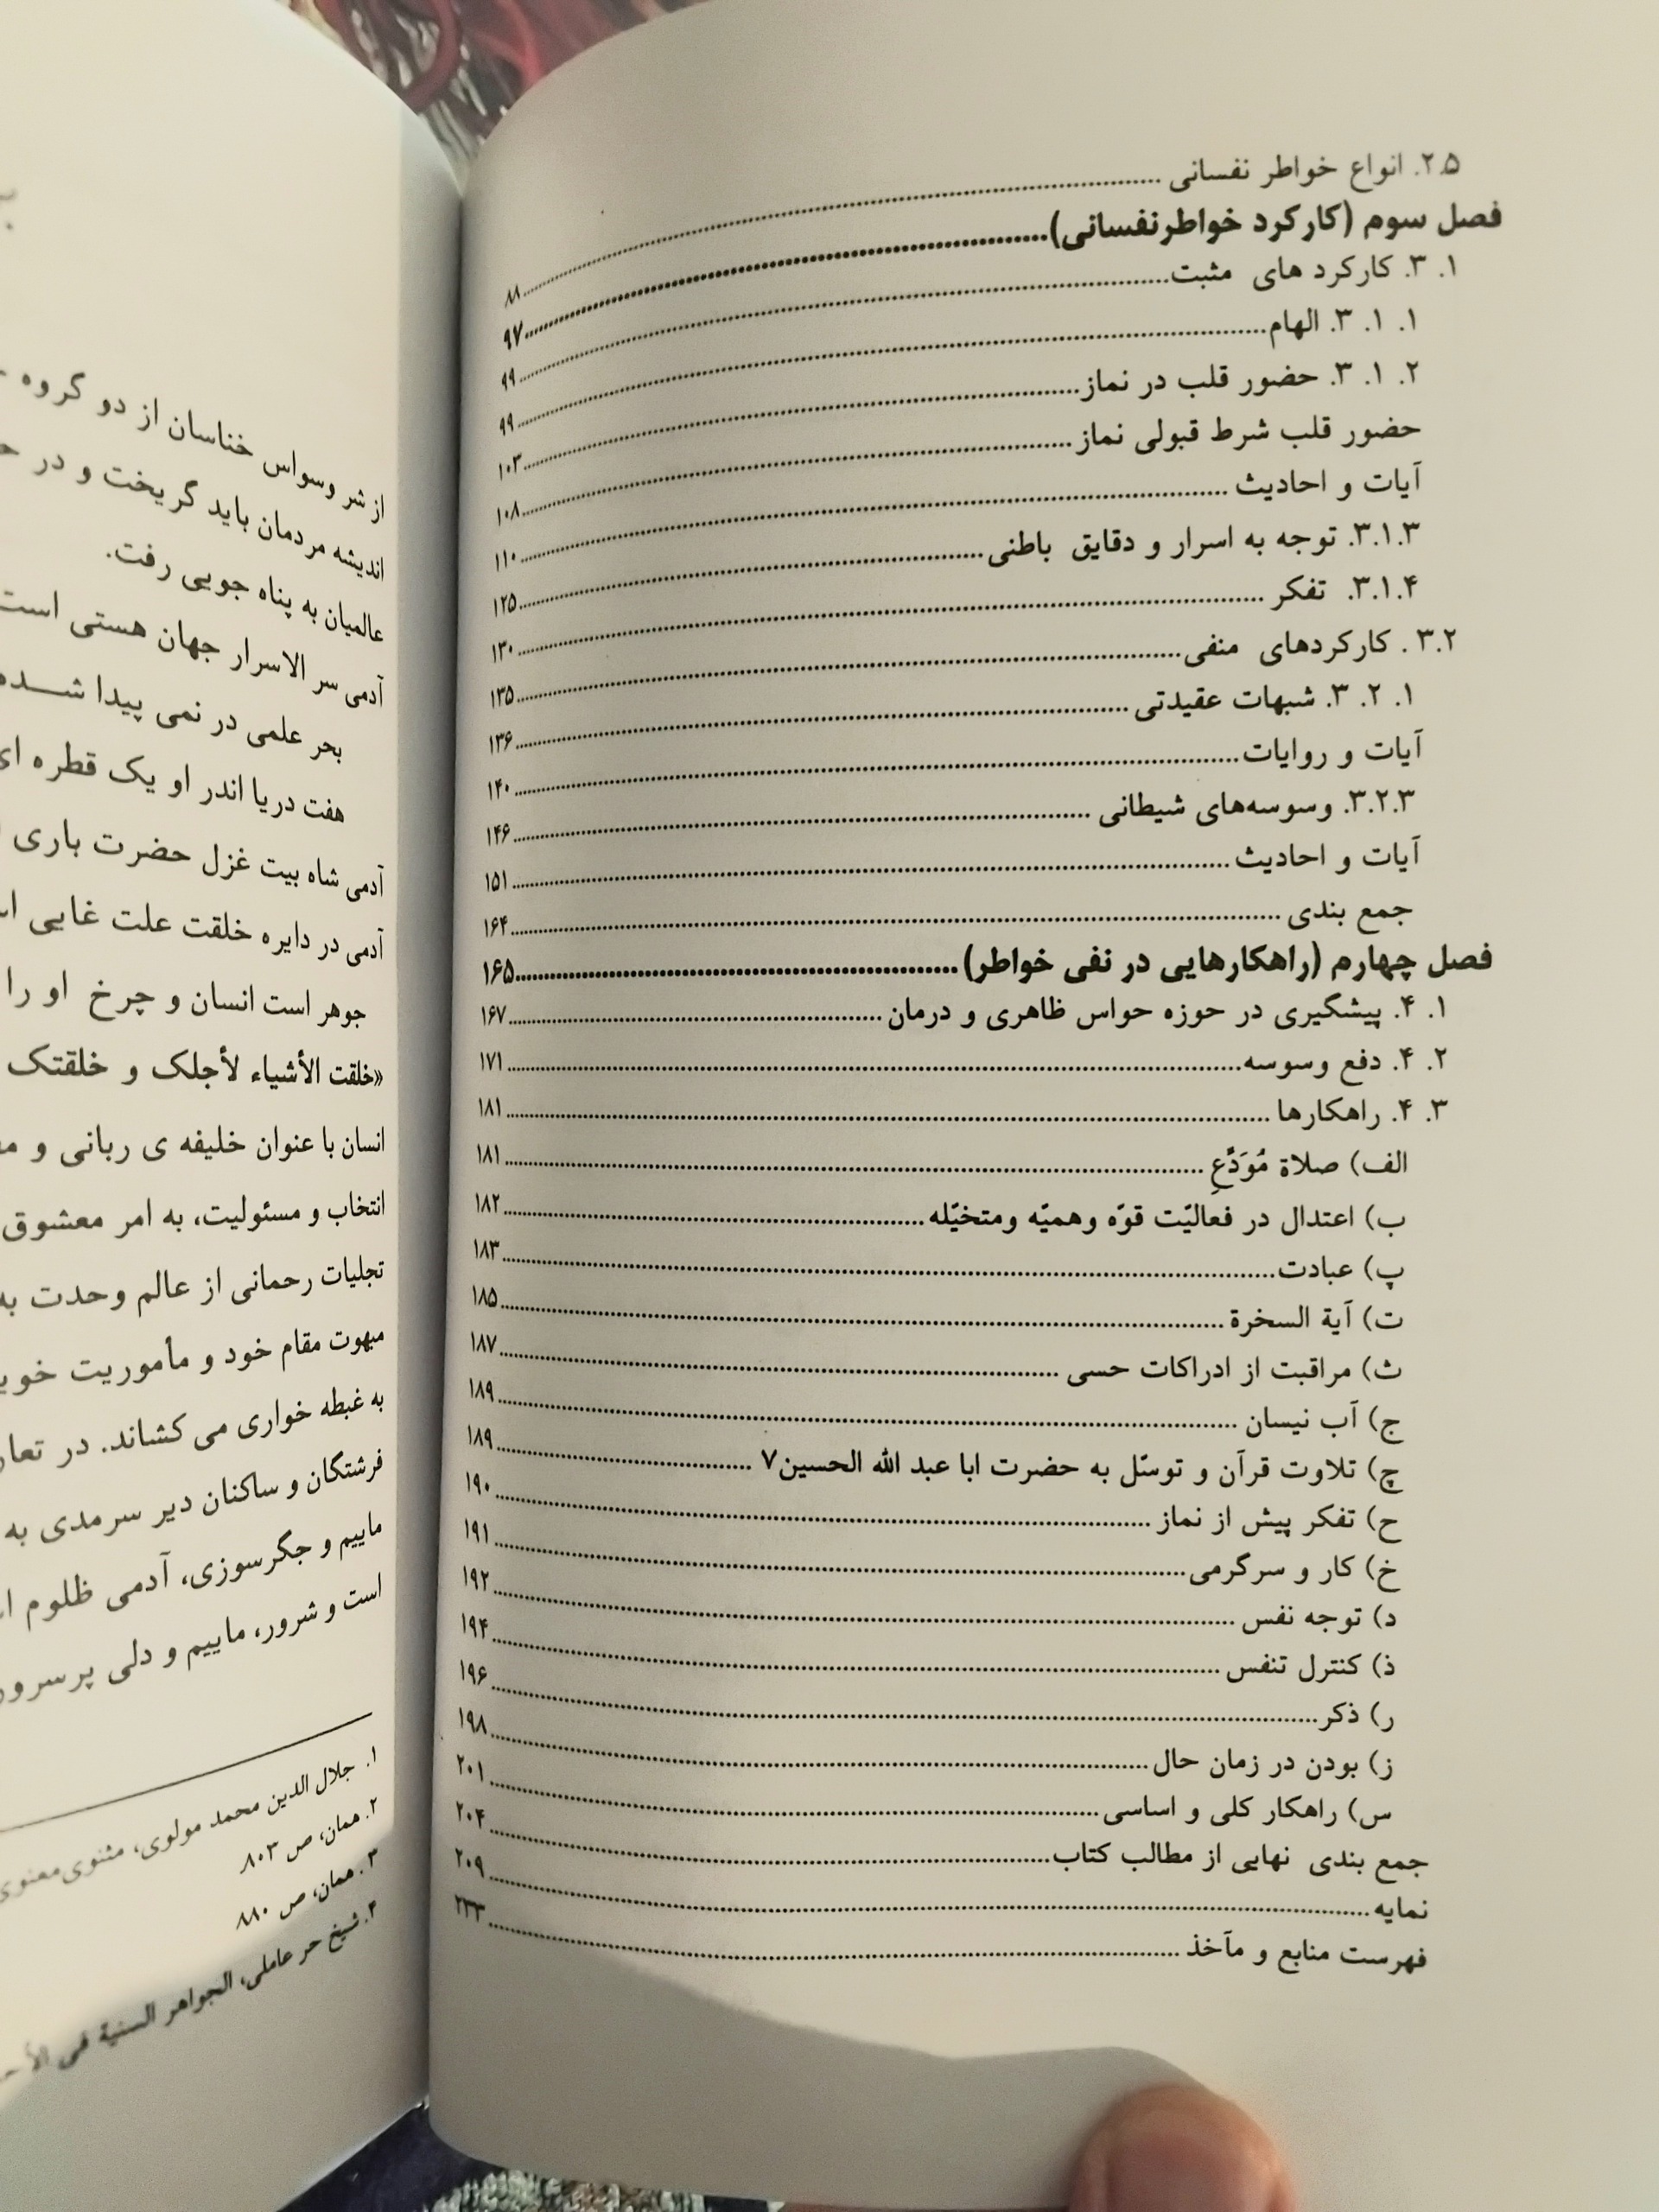 ۲.۵. انواع خواطر نفسانی ........ ۸۸
فصل سوم (کارکرد خواطرنفسانی) ........ ۹۷
۱. ۳. کارکرد های مثبت ........ ۹۹
۱. ۱. ۳. الهام ........ ۹۹
۲. ۱. ۳. حضور قلب در نماز ........ ۱۰۳
حضور قلب شرط قبولی نماز ........ ۱۰۸
آیات و احادیث ........ ۱۱۰
۳.۱.۳. توجه به اسرار و دقایق باطنی ........ ۱۲۵
۳.۱.۴. تفکر ........ ۱۳۰
۳.۲ . کارکردهای منفی ........ ۱۳۵
۱. ۲. ۳. شبهات عقیدتی ........ ۱۳۶
آیات و روایات ........ ۱۴۰
۳.۲.۳. وسوسه‌های شیطانی ........ ۱۴۶
آیات و احادیث ........ ۱۵۱
جمع بندی ........ ۱۶۴
فصل چهارم (راهکارهایی در نفی خواطر) ........ ۱۶۵
۱. ۴. پیشگیری در حوزه حواس ظاهری و درمان ........ ۱۶۷
۲. ۴. دفع وسوسه ........ ۱۷۱
۳. ۴. راهکارها ........ ۱۸۱
الف) صلاة مُوَدَّعِ ........ ۱۸۱
ب) اعتدال در فعالیّت قوّه وهمیّه ومتخیّله ........ ۱۸۲
پ) عبادت ........ ۱۸۳
ت) آیة السخرة ........ ۱۸۵
ث) مراقبت از ادراکات حسی ........ ۱۸۷
ج) آب نیسان ........ ۱۸۹
چ) تلاوت قرآن و توسّل به حضرت ابا عبد الله الحسین۷ ........ ۱۸۹
ح) تفکر پیش از نماز ........ ۱۹۰
خ) کار و سرگرمی ........ ۱۹۱
د) توجه نفس ........ ۱۹۲
ذ) کنترل تنفس ........ ۱۹۴
ر) ذکر ........ ۱۹۶
ز) بودن در زمان حال ........ ۱۹۸
س) راهکار کلی و اساسی ........ ۲۰۱
جمع بندی نهایی از مطالب کتاب ........ ۲۰۴
نمایه ........ ۲۰۹
فهرست منابع و مآخذ ........ ۲۳۳
از شر وسواس خناسان از دو گروه
اندیشه مردمان باید گریخت و در
عالمیان به پناه جویی رفت.
آدمی سر الاسرار جهان هستی است
بحر علمی در نمی پیدا شده
هفت دریا اندر او یک قطره ای
آدمی شاه بیت غزل حضرت باری
آدمی در دایره خلقت علت غایی
جوهر است انسان و چرخ او را
«خلقت الأشیاء لأجلک و خلقتک
انسان با عنوان خلیفه ی ربانی و
انتخاب و مسئولیت، به امر معشوق
تجلیات رحمانی از عالم وحدت
مبهوت مقام خود و مأموریت
به غبطه خواری می کشاند. در
فرشتگان و ساکنان دیر سرمدی به
ماییم و جگرسوزی، آدمی ظلوم
است و شرور، ماییم و دلی پرسرور
۱. جلال الدین محمد مولوی، مثنوی معنوی
۲. همان، ص ۸۰۳
۳. همان، ص ۸۸۰
۴. شیخ حر عاملی، الجواهر السنیة فی